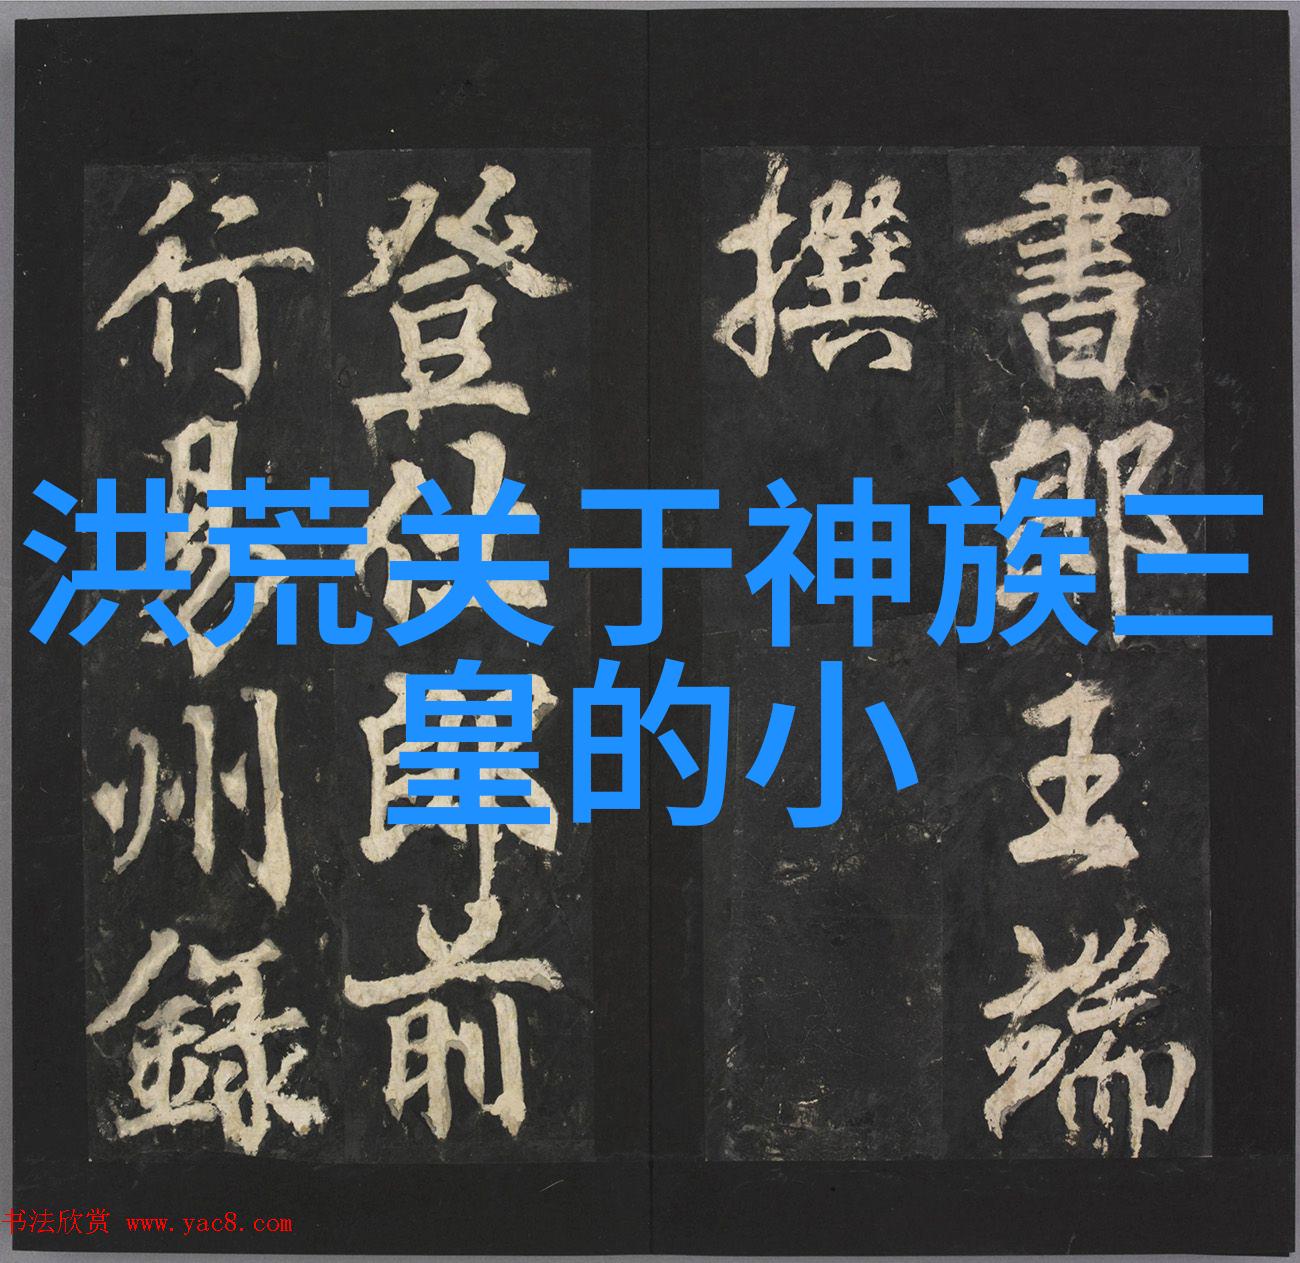 洪荒关于神族三
皇的小
書郎王端
撰
登仕郎前
行易州録
书法欣赏 www.yac8.com